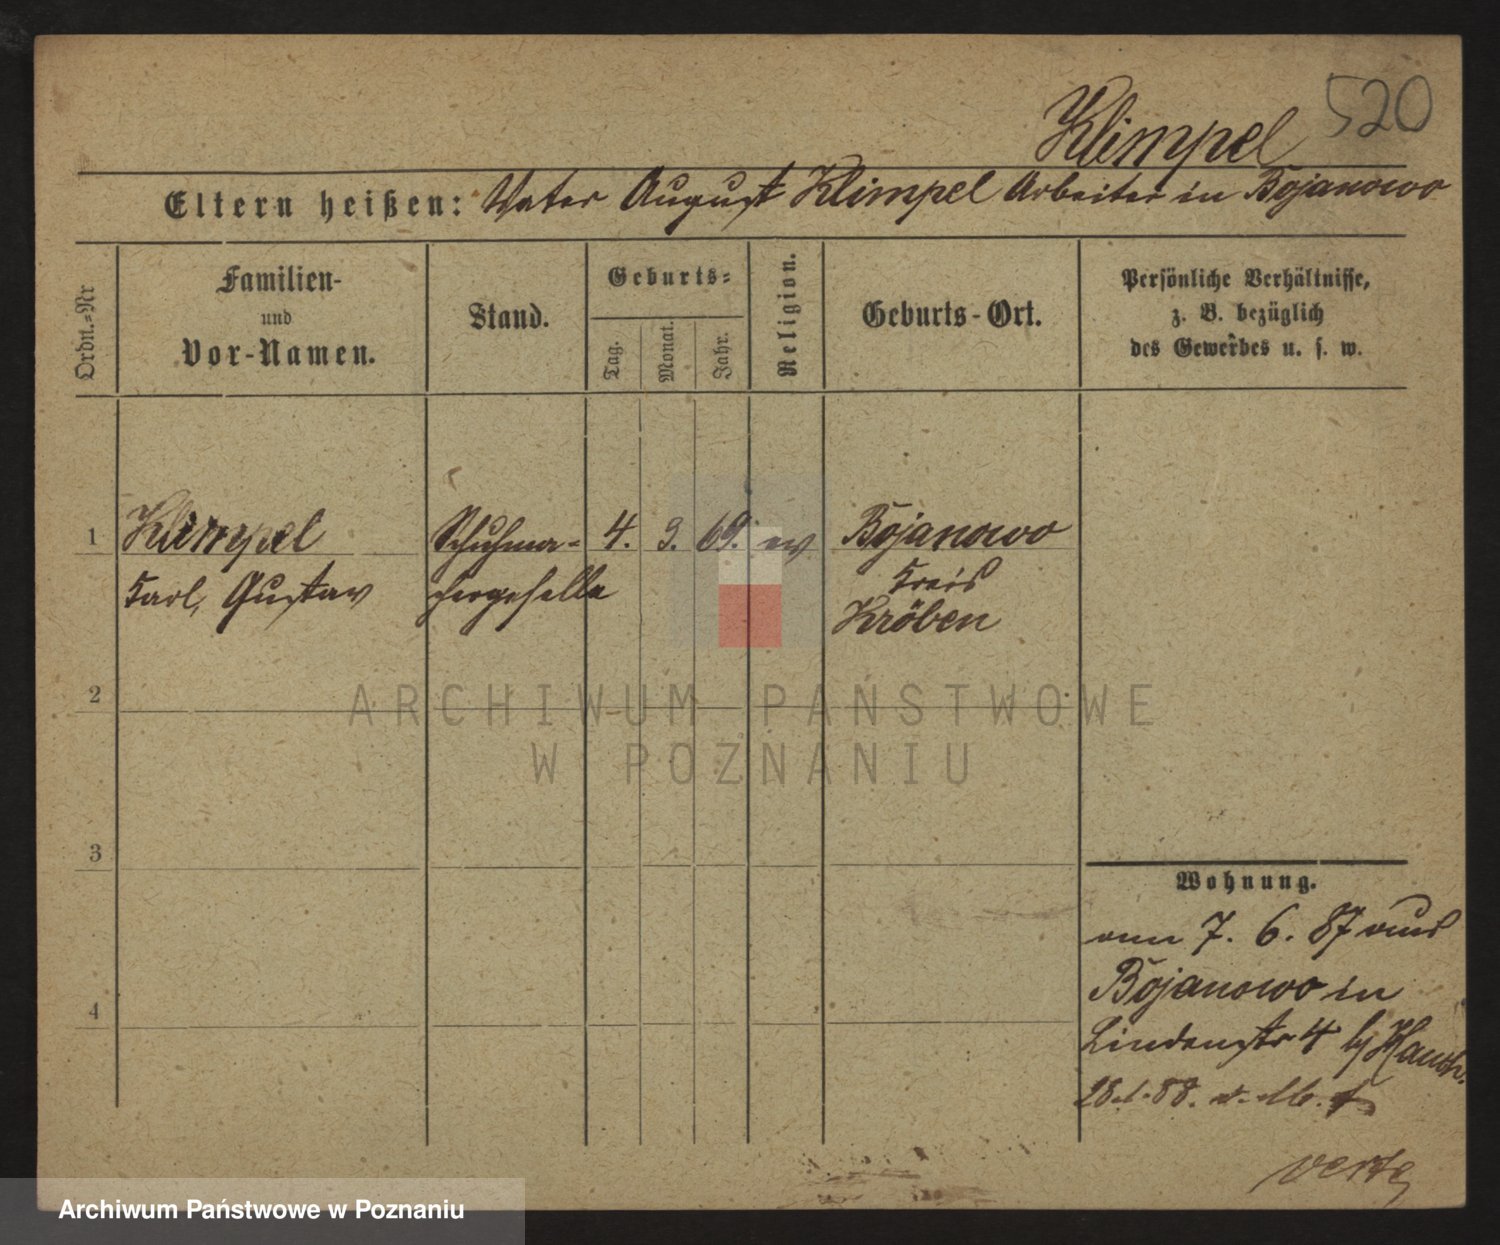 520
Klimpel
Eltern heißen: Vater August Klimpel Arbeiter in Bojanowo
Ordn.-Nr
Familien-
und
Vor-Namen.
Stand.
Geburts-
Tag.
Monat.
Jahr.
Religion.
Geburts-Ort.
Persönliche Verhältnisse,
z. B. bezüglich
des Gewerbes u. s. w.
1 Klimpel Schuhma- 4. 9. 69. ev Bojanowo
Karl, Gustav chergeselle Kreis
Kröben
2
ARCHIWUM PAŃSTWOWE
W POZNANIU
3
Wohnung.
7. 6. 87 aus
Bojanowo in
4
Lindenstr 4
88.
verte
Archiwum Państwowe w Poznaniu